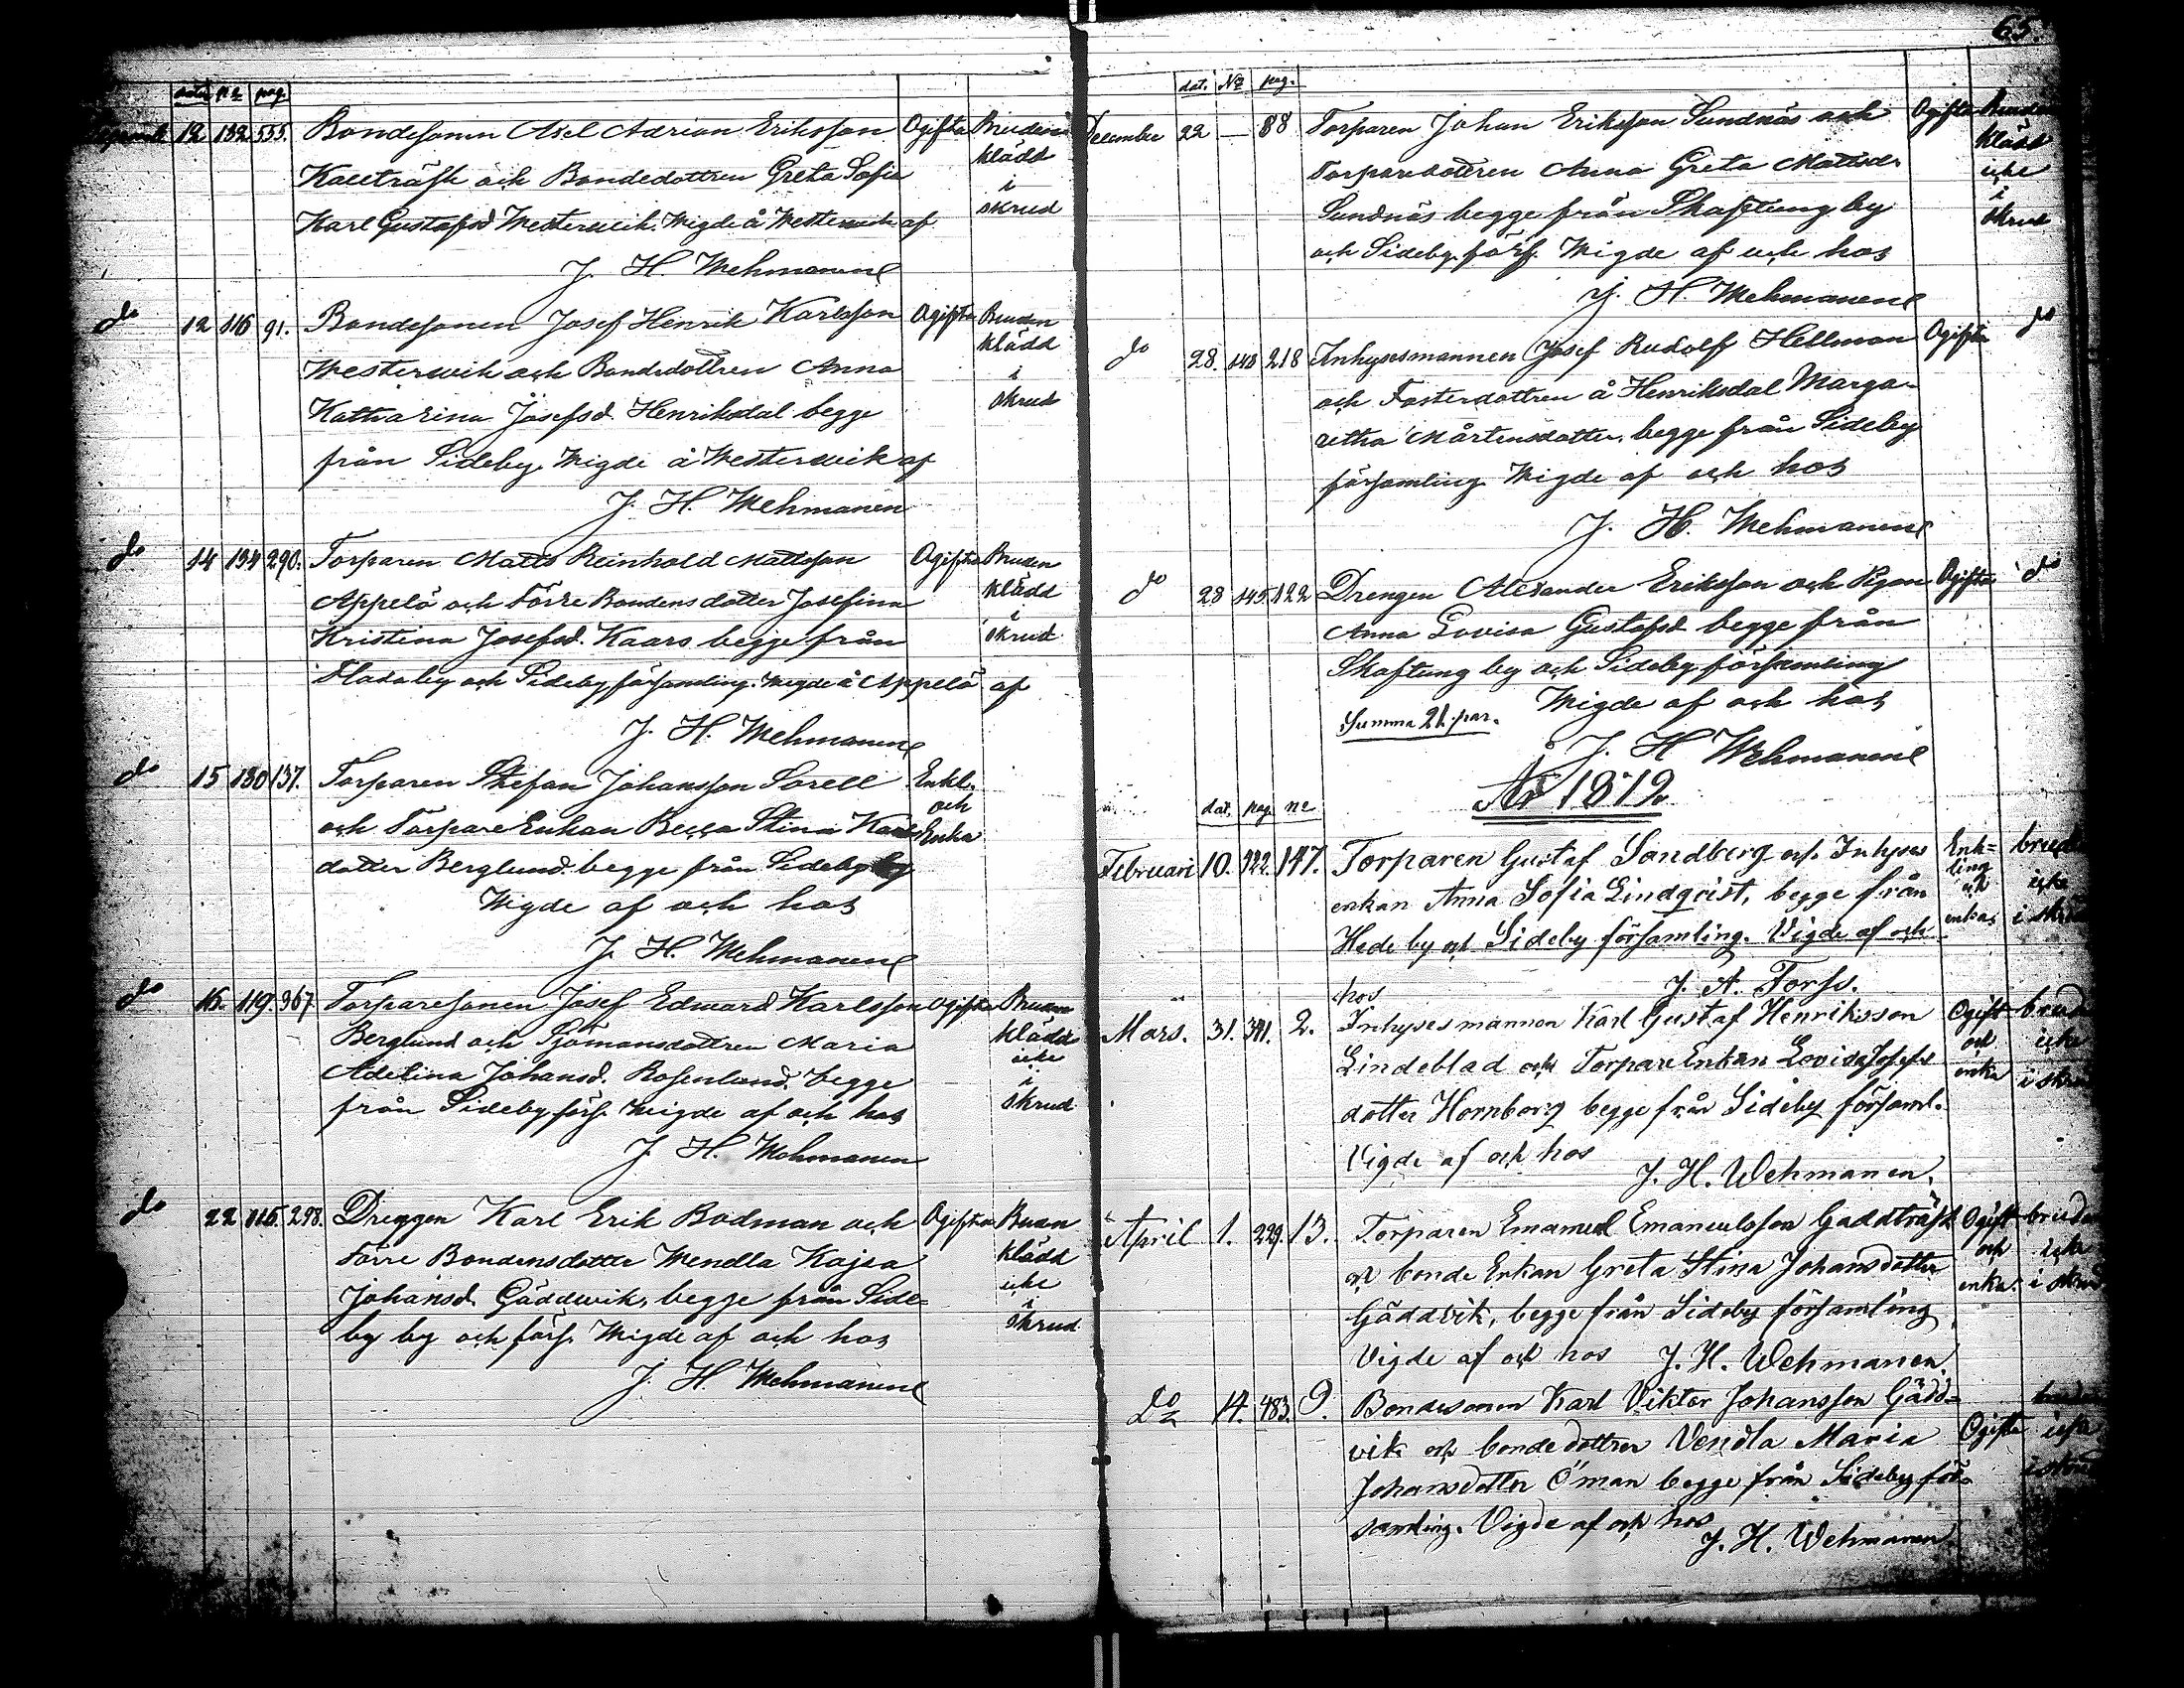 dat. No pag.
12 132 555. Bondesonen Axel Adrian Eriksson Ogifta Bruden
Kallträsk och Bondedottren Greta Sofia klädd
Karl Gustafsd Westerwik. Wigde å Westerwik af i skrud
J. H. Wehmanen
do 12 116 91. Bondesonen Josef Henrik Karlsson Ogifta Bruden
Westerwik och Bondedottren Anna klädd
Katharina Josefsd. Henriksdal begge i skrud
från Sideby. Wigde å Westerwik af
J. H. Wehmanen
do 14 134 290. Torparen Matts Reinhold Mattsson Ogifta Bruden
Appelö och Förre Bondens dotter Josefina klädd
Kristina Josefsd. Kaars begge från i skrud
Flada by och Sideby församling. Wigde å Appelö af
J. H. Wehmanen
do 15 130 137. Torparen Stefan Johansson Sorell Enkl.
och Torpare Enkan Becca Stina Karls och
dotter Berglund begge från Sideby by Enka
Wigde af och hos
J. H. Wehmanen
do 16. 119. 367 Torparesonen Josef Edward Karlsson Ogifta Bruden
Berglund och Sjömansdottren Maria klädd
Adelina Johansd. Rosenlund. begge icke
från Sideby förs. Wigde af och hos i skrud
J. H. Wehmanen
do 22 115. 298. Drengen Karl Erik Bodman och Ogifta Bruden
Förre Bondensdotter Wendla Kajsa klädd
Johansd. Gäddwik, begge från Side= icke
by by och förs. Wigde af och hos i skrud
J. H. Wehmanen
65.
dat. No pag.
December 22 — 88 Torparen Johan Eriksson Sundnäs och Ogifta Bruden
Torparedottren Anna Greta Mattsd. klädd
Sundnäs begge från Skaftung by icke i
och Sideby förs. Wigde af och hos skrud
J. H. Wehmanen
do 28. 148 218 Inhysesmannen Josef Rudolf Hellman Ogifta do
och Fosterdottren å Henriksdal Marga-
retha Mårtensdotter, begge från Sideby
församling Wigde af och hos
J. H. Wehmanen
do 28 145. 122 Drengen Alexander Eriksson och Pigan Ogifta do
Anna Lovisa Gustafsd. begge från
Skaftung by och Sideby församling
Wigde af och hos
Summa 21. par.
J. H Wehmanen
dat. pag. no
Februari 10. 122. 147. Torparen Gustaf Sandberg och Inhyses Enk= brud
enkan Anna Sofia Lindqvist, begge från ling och icke
Hede by och Sideby församling. Vigde af och enka i skrud
hos J. A. Forss.
Mars. 31. 391. 2. Inhysesmannen Karl Gustaf Henriksson Ogift bruden
Lindeblad och Torpare Enkan Lovisa Josefs och icke
dotter Hornborg begge från Sideby församl. enka i skrud
Vigde af och hos
J. H. Wehmanen.
April 1. 229. 13. Torparen Emanuel Emanuelsson Gaddträsk Ogift bruden
och bonde Enkan Greta Stina Johansdotter och icke
Gäddvik, begge från Sideby församling enka. i skrud
Vigde af och hos J. H. Wehmanen.
Do 14. 483. 9. Bondesonen Karl Viktor Johansson Gädd= bruden
vik och bondedottren Vendla Maria Ogifta icke
Johansdotter Öman begge från Sideby för= i skrud
samling. Vigde af och hos
J. H. Wehmanen.